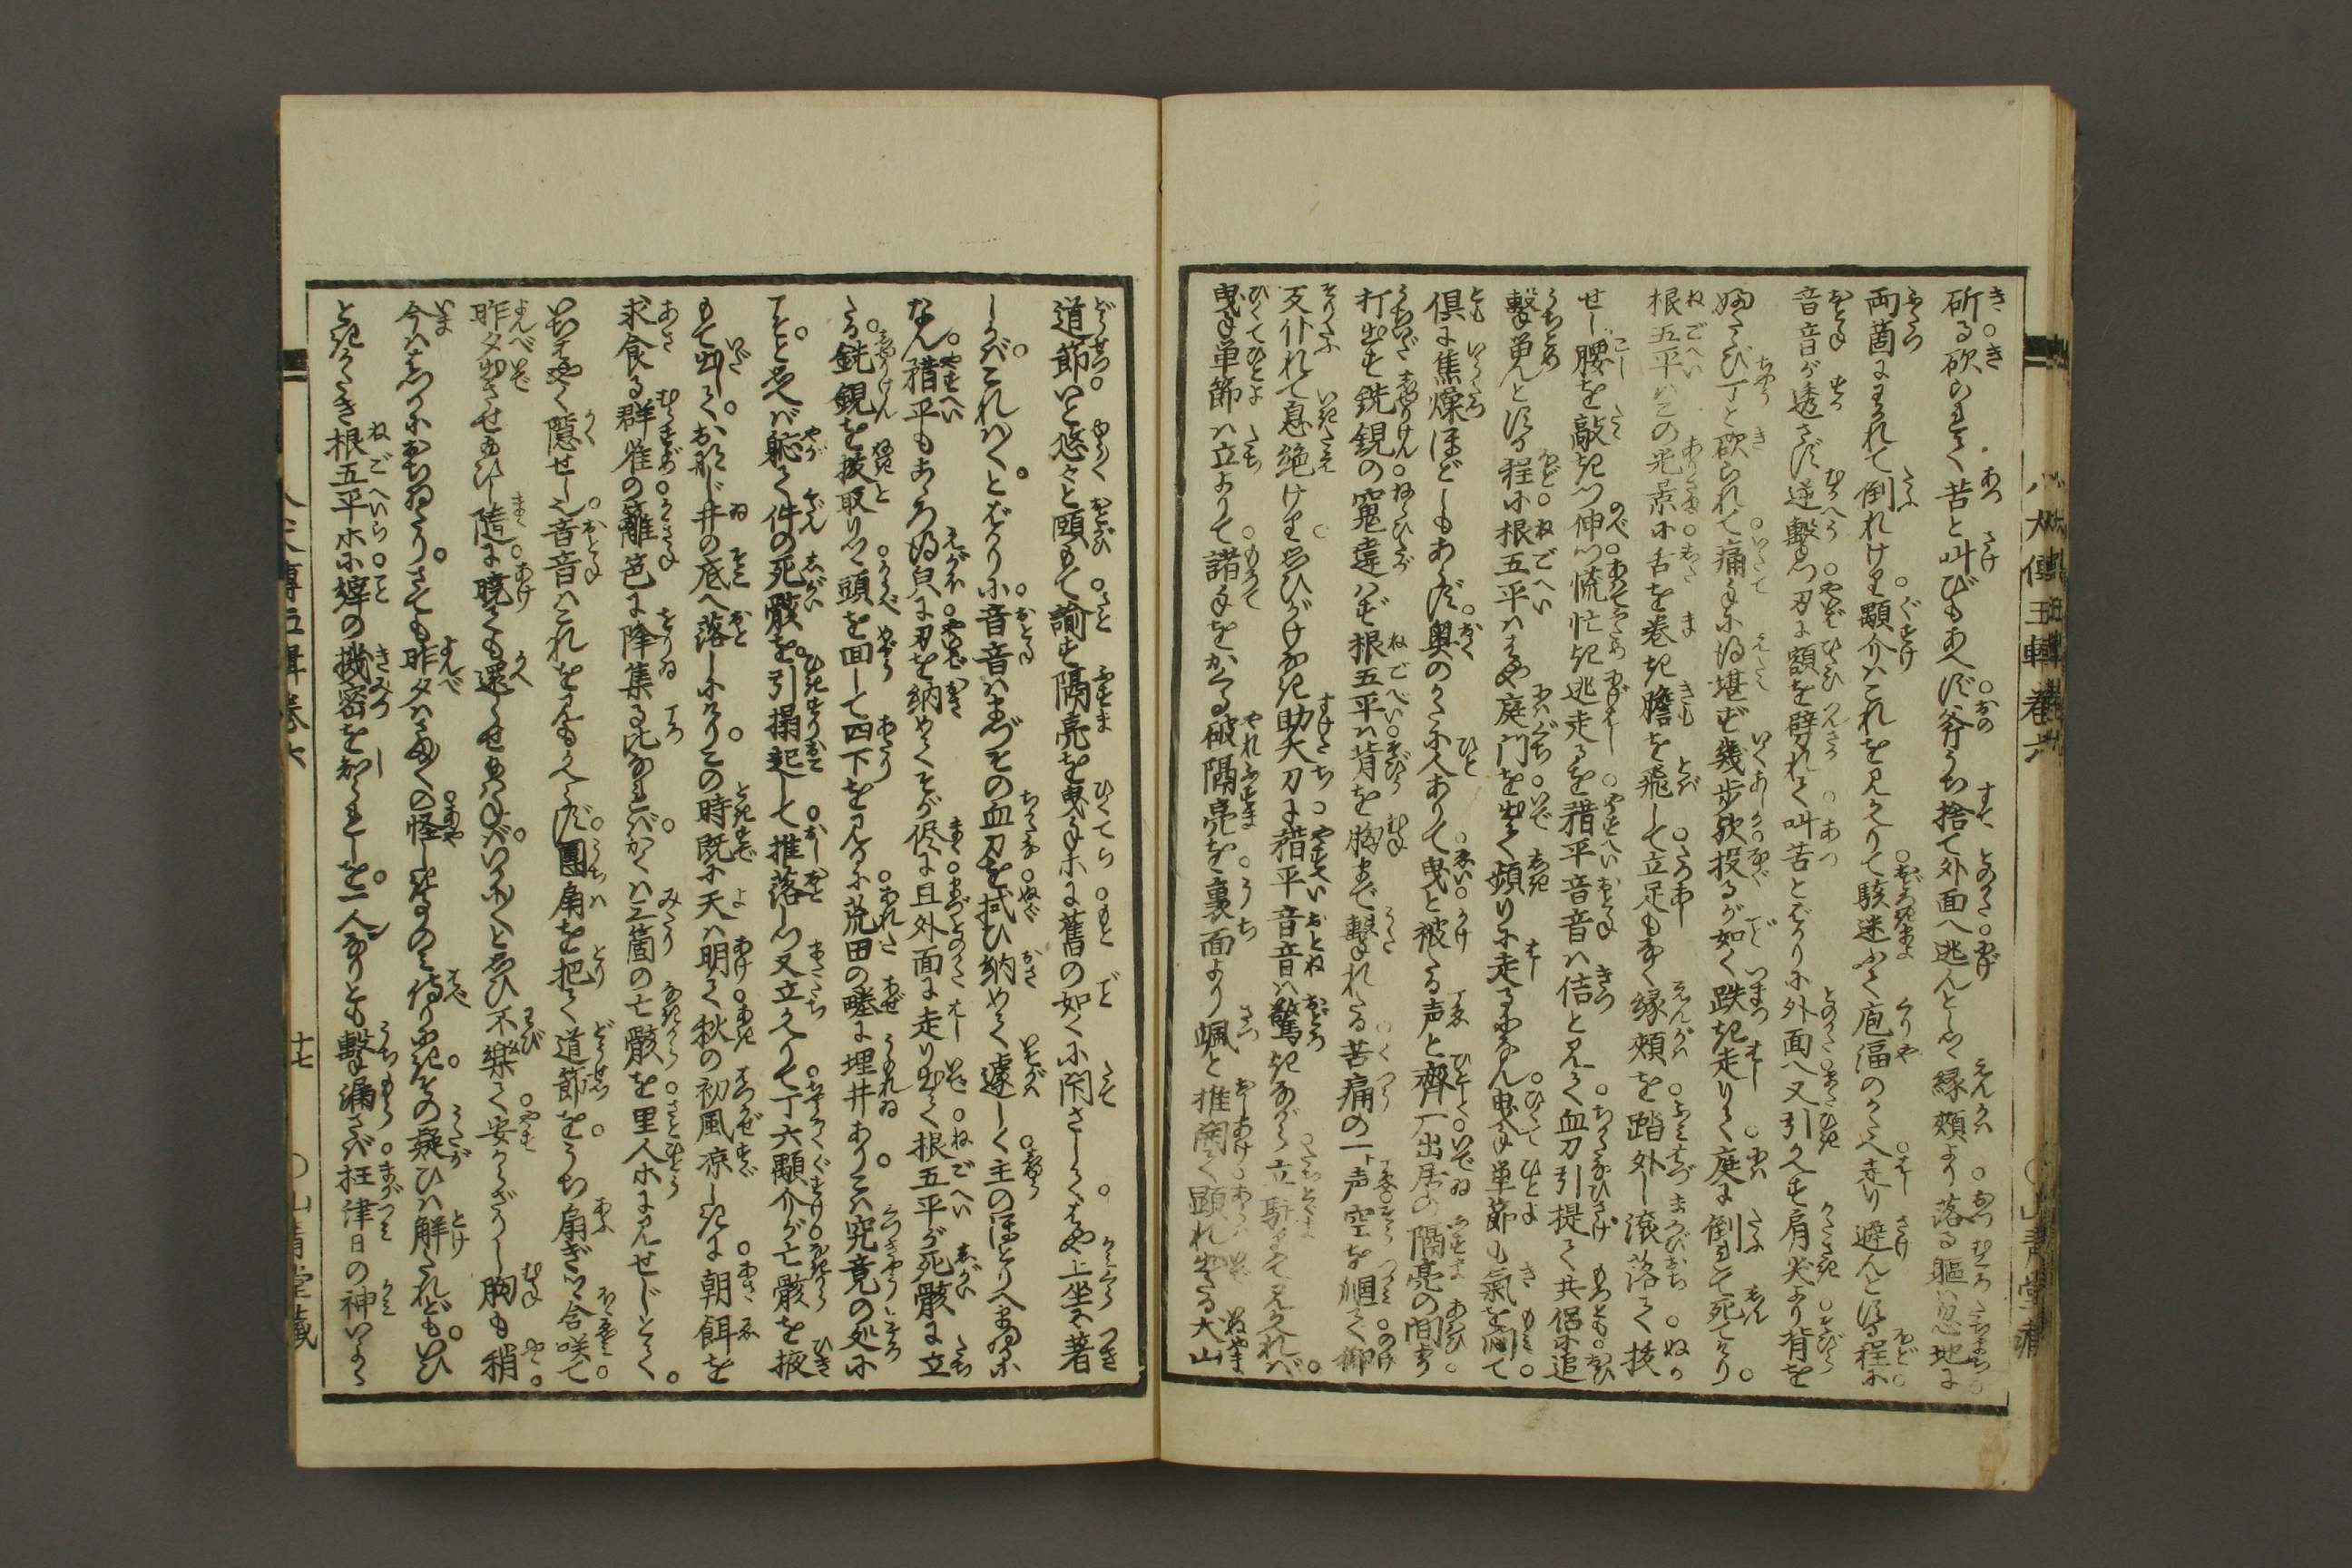 斫る砍られて苦と叫びもあへず斧うち捨て外面へ逃んとしつ縁頬より落る軀は忽地に
両箇になれて倒れけり顒介はこれを見かへりて駭迷ふて庖湢のかたへ走り避んとする程に
音音が透さず逆撃の刃に額を劈れて叫苦とばかりに外面へ又引かへす肩尖より背を
ふたゝび丁と砍られて痛手に得堪ず幾歩歟投るが如く跌き走りて庭に倒れて死てけり
根五平はこの光景に舌を巻き膽を飛して立足もなく縁頬を踏外し滾落て抜
せし腰を敲きつ伸つ慌忙き逃走るを𤢖平音音は佶と見て血刀引提て共侶に追
撃まくとする程に根五平ははや庭門を出て頻りに走るになん曳手単節も氣を悶て
倶に焦燥ほどしもあらず奥のかたに人ありて曳と被たる声と齊一出居の隔亮の間より
打出す銑鋧の窺違はず根五平は背を胸まで撃れたる苦痛の一声空を𢪸て仰
反仆れて息絶けり思ひがけなき助大刀に𤢖平音音は驚きながら立駐りて見かへれば
曳手単節は立よりて諸手をかくる破隔亮を裏面より颯と推開て顕れ出たる犬山
道節いと悠々と頤もて諭す隔亮を曳手ホに舊の如くに閇さしてはや上坐に著
しかばこれは〳〵とばかりに音音はまづその血刀を拭ひ納めて遽しく主のほとりへまゐるに
なん𤢖平もあら身に刃を納めてそが侭に且外面に走り出て根五平が死骸に立
たる銑鋧を抜取りつゝ頭を回して四下を見るに荒田の畻に埋井ありこは究竟の処に
こそと思へば躬て件の死骸を引搨起して推落しつ又立かへりて丁六顒介が亡骸を掖
もて出しておなじ井の底へ落しにけりこの時既に天は明て秋の初風凉しきに朝餌を
求食る群雀の籬笆に降集る比なればかくは三箇の亡骸を里人ホに見せじとて
いちはやく隠せし也音音はこれを見もかへらず團扇を把て道節をうち扇ぎつゝ含咲て
昨夕出させ給ひし隨に曉ても還らせ給はねばいかにと思ひ不樂て安からざりし胸も稍
今はしづかにおちゐたりさても昨夕はさま〴〵の怪しき事のみ侍りにきその疑ひは解たれどもいひ
ときがたき根五平ホに緯の機密をしられしを一人なりとも撃漏さば枉津日の神いよゝ
八犬傳五輯卷六
十七
○山青堂藏
八犬傳五輯卷六
○山青堂藏